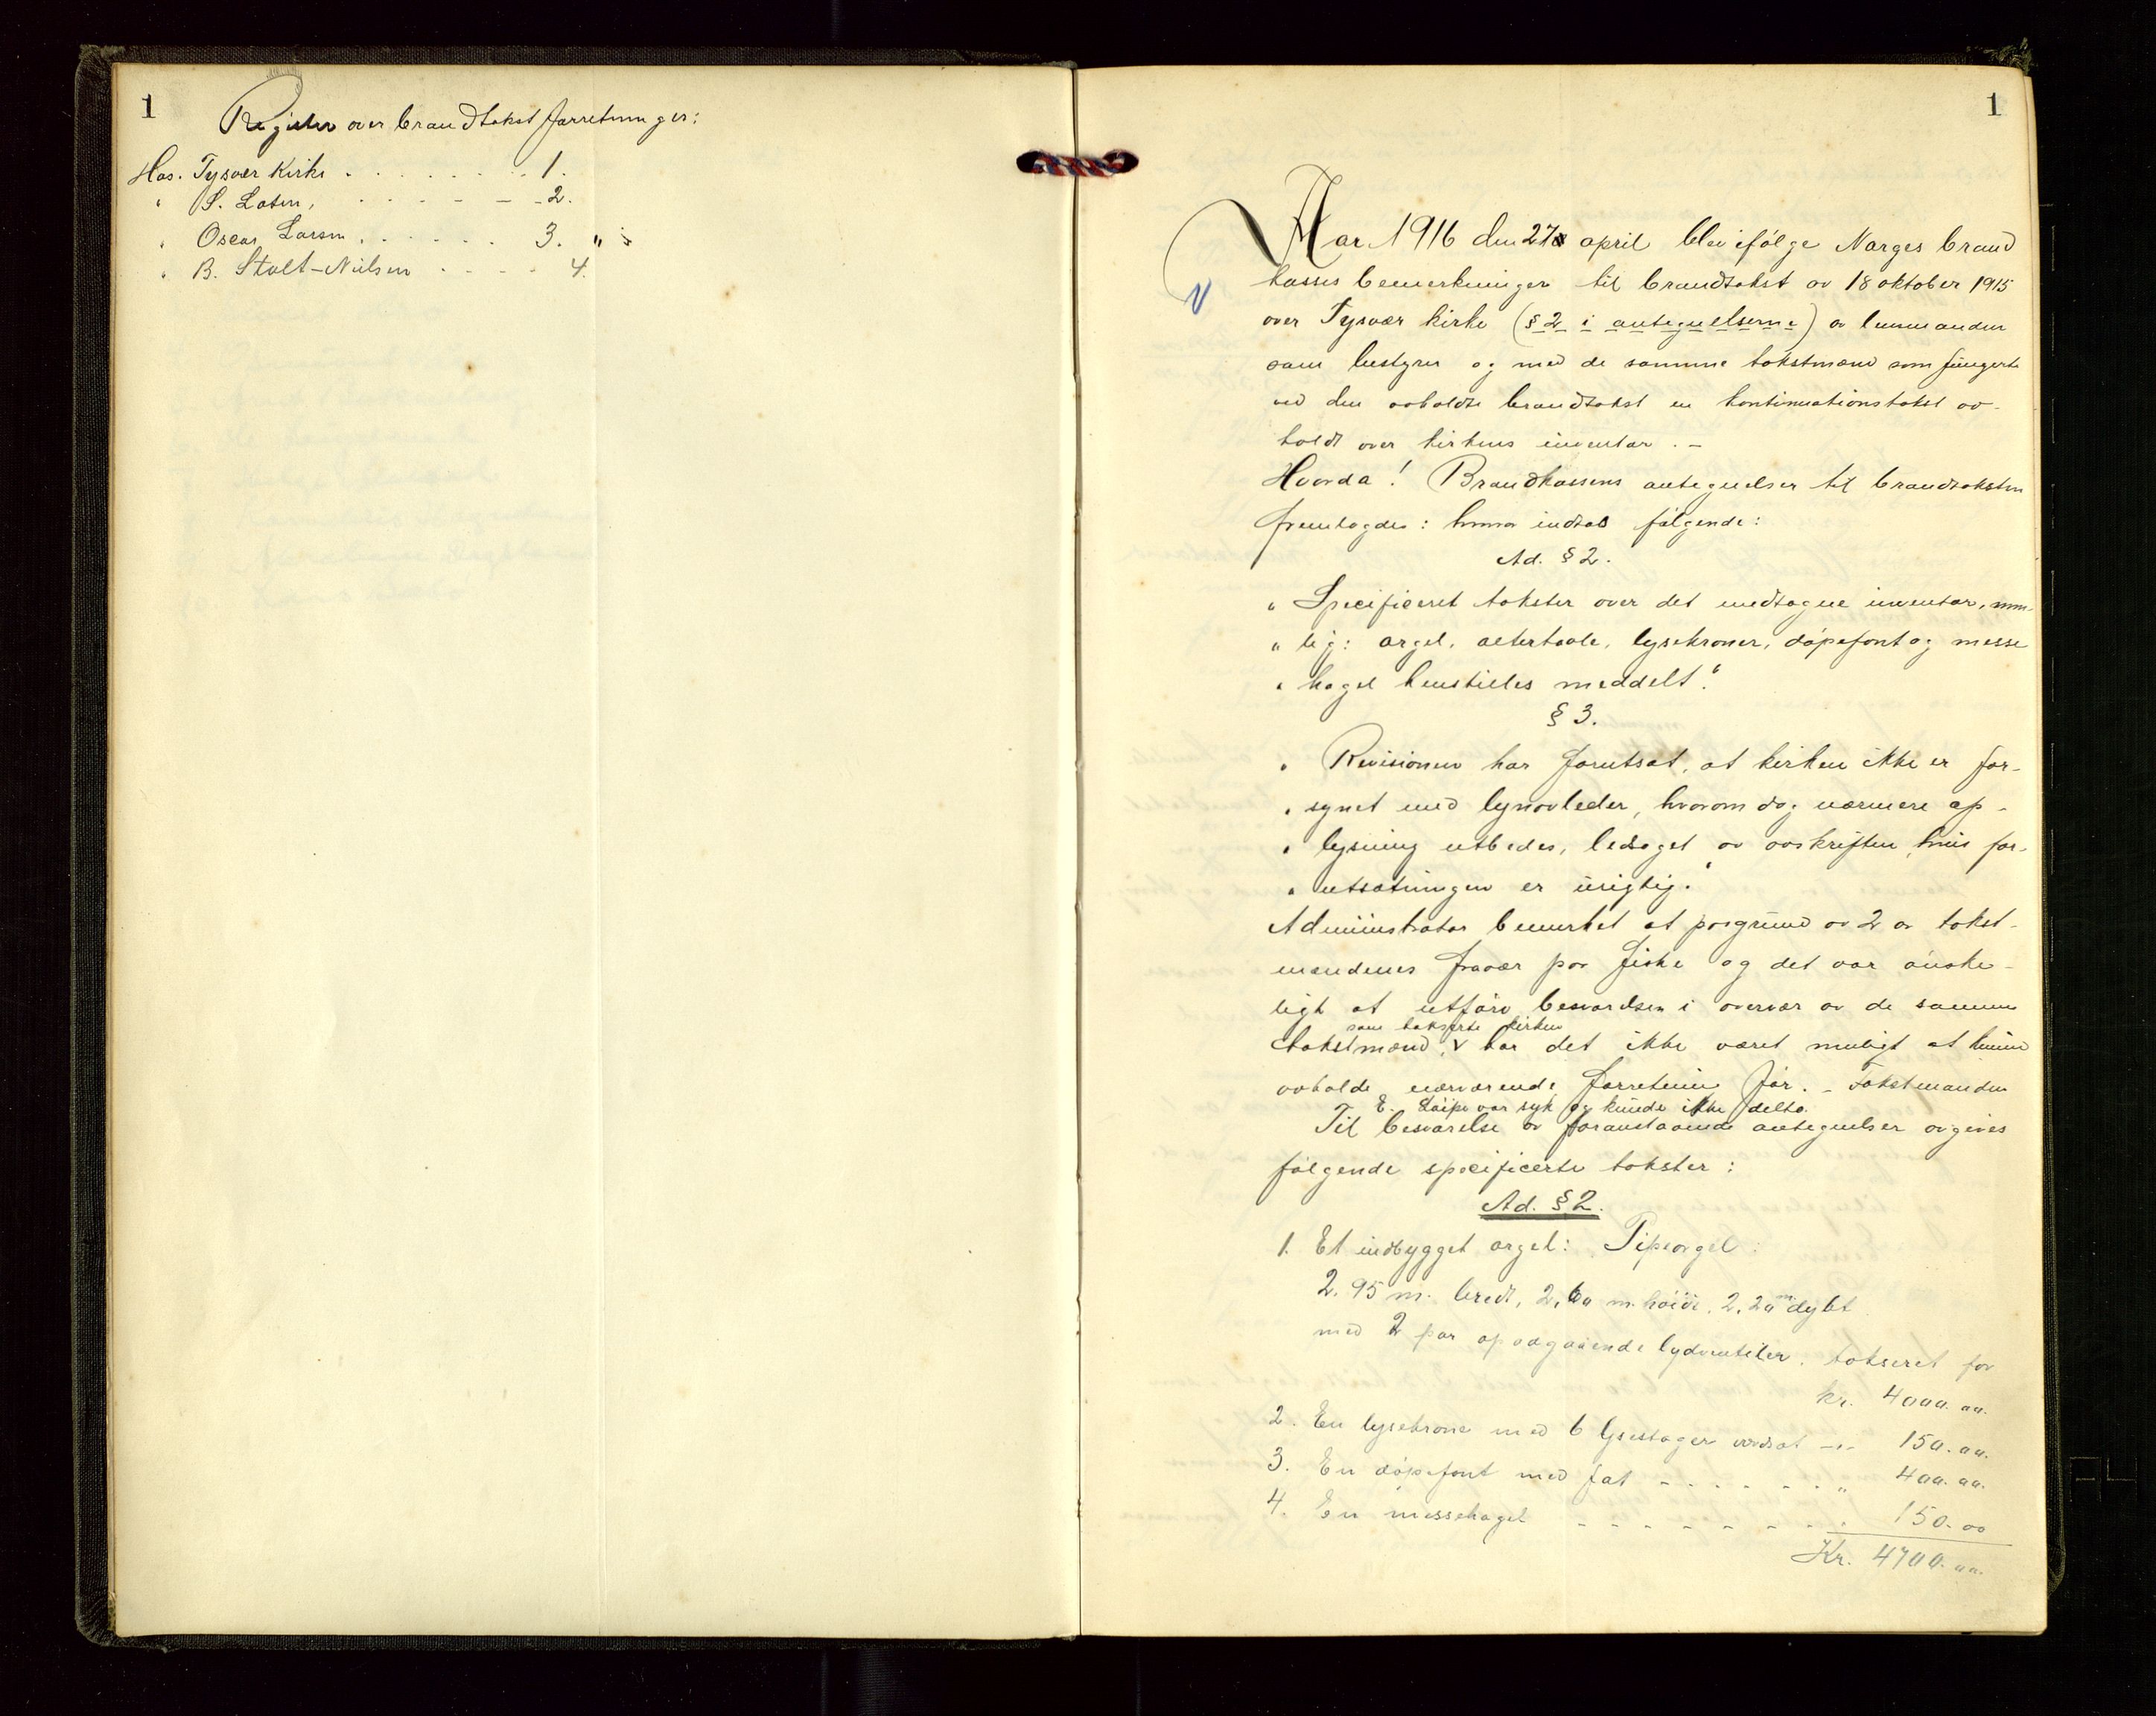 1
Register over brandtakst forretninger:
Has. Tysvær Kirke . . . . . . . 1.
" S. Lasen, . . . . - - - 2.
" Oscar Larsen . . . . . . 3. "
" B. Stolt-Nielsen . . . . 4.
1
Aar 1916 den 27 april blev ifølge Norges brand
kasses bemerkninger til brandtakst av 18 oktober 1915
over Tysvær kirke (§ 2 i antegnelserne) av lensmanden
som bestyrer og med de samme takstmænd som fungerte
ved den avholdte brandtakst en kontinuationstakst av-
holdt over kirkens inventar. -
Hvorda! Brandkassens antegnelser til brandtaksten
fremlagdes: hvorav indtas følgende:
Ad. § 2.
" Specificeret takster over det medtagne inventar, nem-
" lig: orgel, altertavle, lysekroner, døpefont og messe
" hagel henstilles meddelt."
§ 3.
" Revisionen har forutsat, at kirken ikke er for-
" synet med lynavleder, hvorom dog nærmere op-
" lysning utbedes, ledsaget av avskriften, hvis for-
" utsætningen er urigtig."
Administrator bemerket at paagrund av 2 av takst-
mændenes fravær paa fiske og det var ønske-
ligt at utføre besvarelsen i overvær av de samme
som takserte kirken
takstmænd, V har det ikke været muligt at kunne
avholde nærværende forretning før. - Takstmanden
E. Støipe var syk og kunde ikke delta.
Til besvarelse av foranstaaende antegnelser avgives
følgende specificerte takster:
Ad. § 2.
1. Et indbygget orgel: Pipeorgel:
2.95 m. bredt, 2,60 m. høide, 2,20 m dybt
med 2 par opadgaaende lydventiler, takseret for
kr. 4000.00.
2. En lysekrone med 6 lysestager værdsat -"- 150.00.
3. En døpefont med fat - . . . . . " 400.00.
4. En messehagel - - - - - - - . . 150.00
Kr. 4700.00.